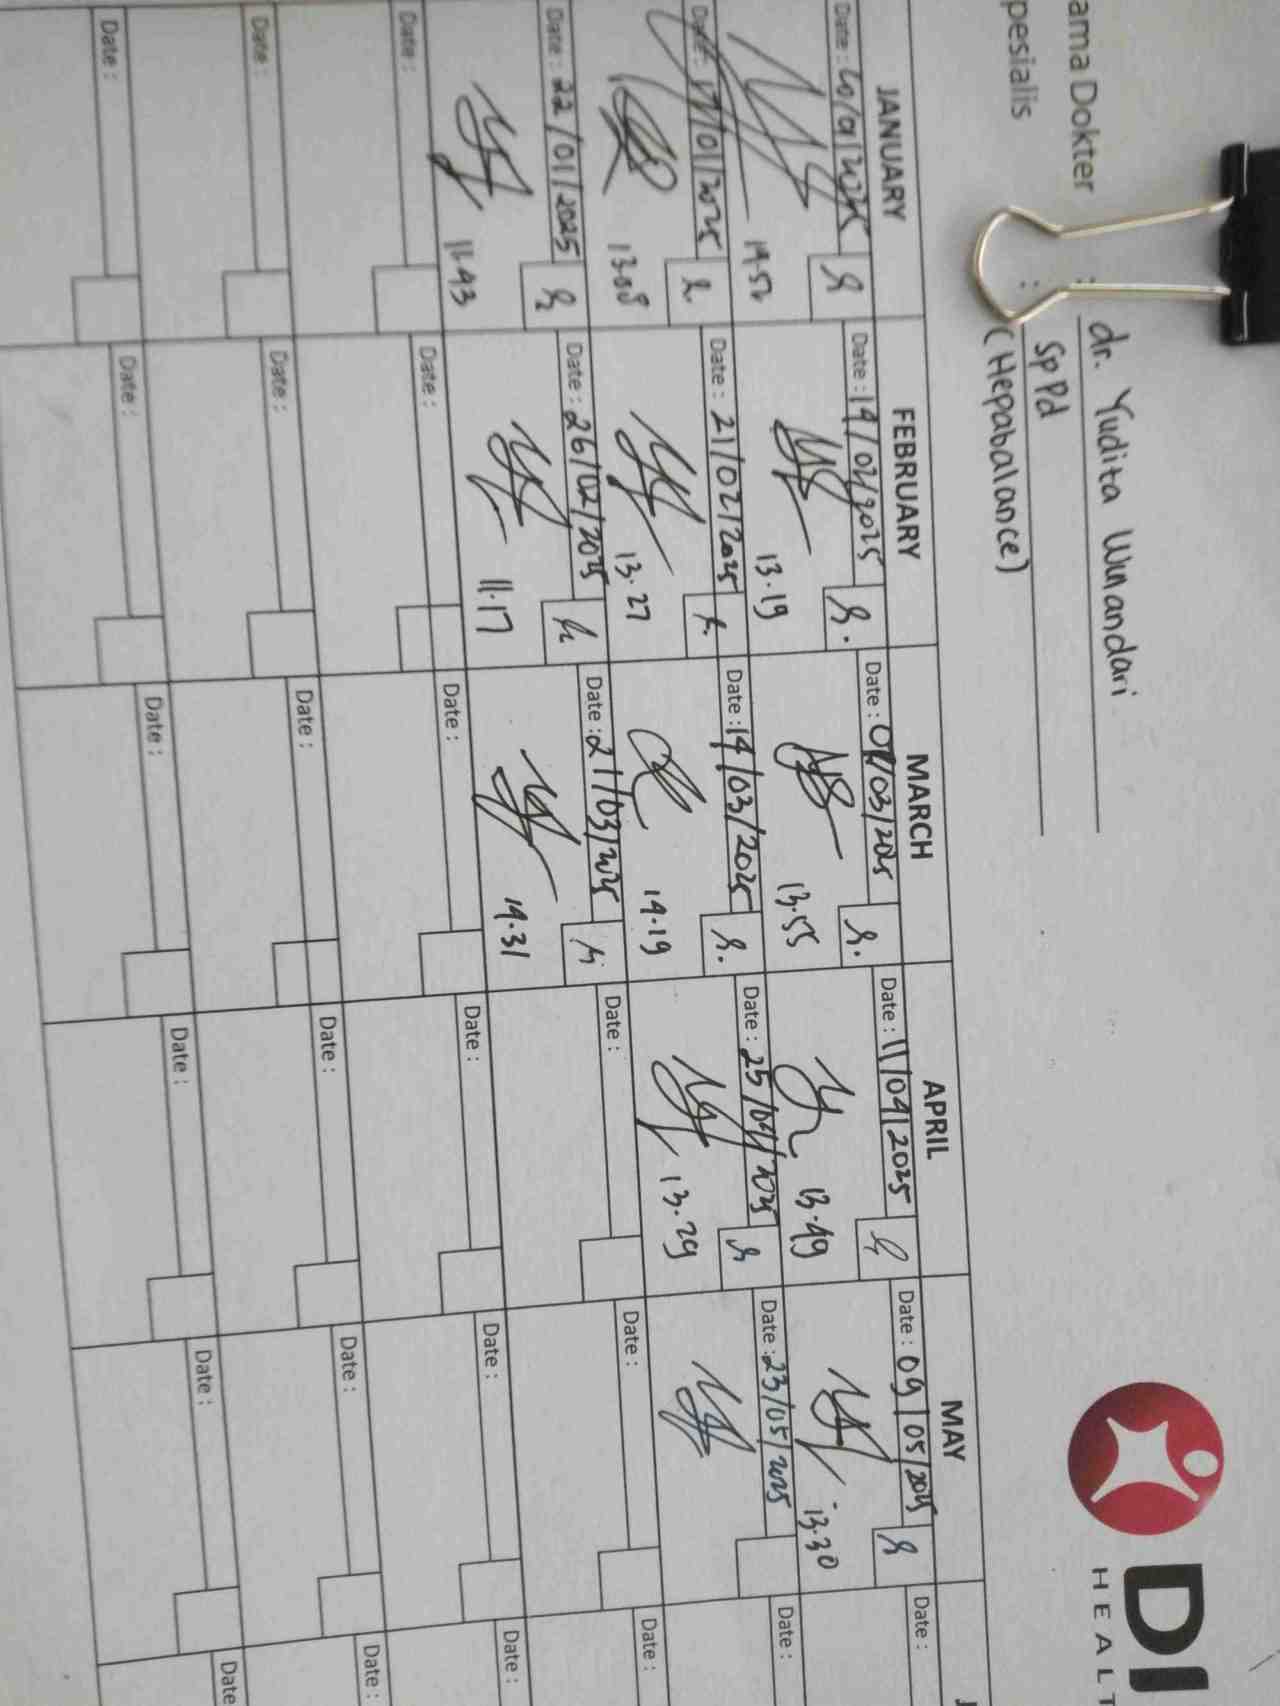 ama Dokter : dr. Yudita Wunandari
pesialis : SpPd
(Hepabalance)
DI
HEALT
JANUARY FEBRUARY MARCH APRIL MAY J
Date : 10/01/2025 Date : 14/02/2025 Date : 07/03/2025 Date : 11/04/2025 Date : 09/05/2025 Date :
14.52 13.19 13.55 13.49 13.30
Date : 17/01/2025 Date : 21/02/2025 Date : 14/03/2025 Date : 25/04/2025 Date : 23/05/2025 Date :
13.08 13.27 14.19 13.29
Date : 22/01/2025 Date : 26/02/2025 Date : 21/03/2025 Date : Date : Date :
11.43 11.17 14.31
Date : Date : Date : Date : Date : Date :
Date : Date : Date : Date : Date : Date :
Date : Date : Date : Date : Date : Date